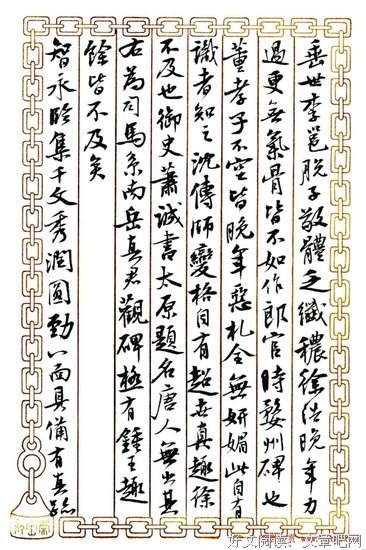 垂世李邕脱子敬體乏纖穠徐浩晚年力
過更無氣骨皆不如作郎官時婺州碑也
董孝子不空皆晚年惡札全無妍媚此自有
識者知之沈傳師變格自有超世真趣徐
不及也御史蕭誠書太原題名唐人無出其
右為司馬系南岳真君觀碑極有鍾王趣
餘皆不及矣
智永臨集千文秀潤圓勁八面具備有真跡
好文阅读 文章吧网